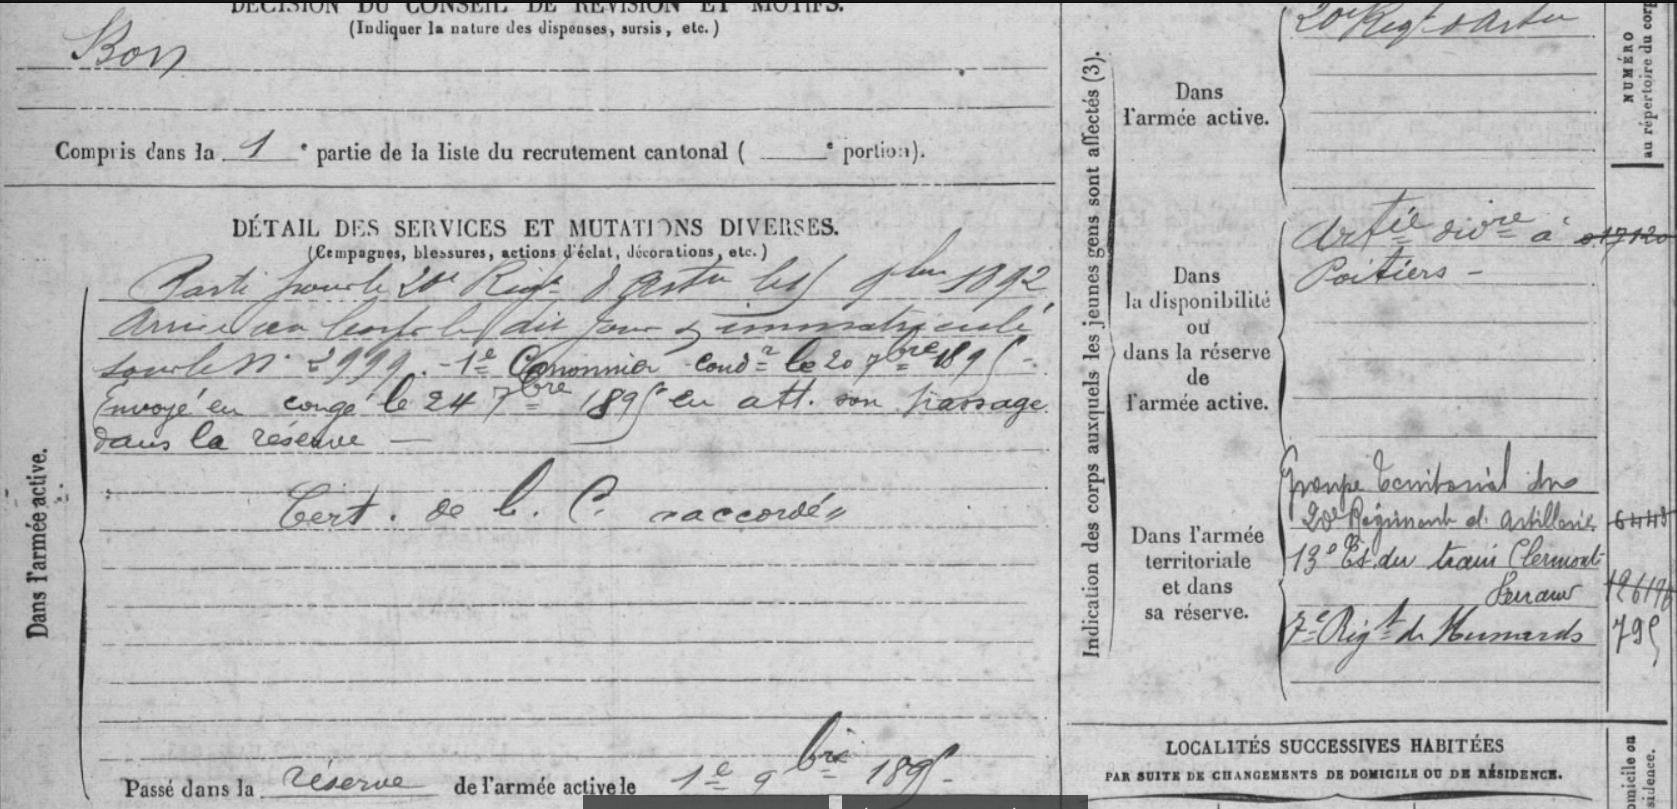 DÉCISION DU CONSEIL DE RÉVISION ET MOTIFS.
(Indiquer la nature des dispenses, sursis, etc.)
Bon
Compris dans la 1 e partie de la liste du recrutement cantonal ( e portion).
DÉTAIL DES SERVICES ET MUTATIONS DIVERSES.
(Campagnes, blessures, actions d'éclat, décorations, etc.)
Dans l'armée active.
Parti pour le 20e Régt d'Artie le 9bre 1892
Arrivé au Corps le dit jour & immatriculé
sous le No 2999. - 1e Canonnier condr le 20 7bre 1895 -
Envoyé en congé le 24 7bre 1895 en att. son passage
dans la réserve —
Cert. de b. C. accordé
Passé dans la réserve de l'armée active le 1e 9bre 1895 -
Indication des corps auxquels les jeunes gens sont affectés (3).
Dans
l'armée active.
20e Régt d'Artie
Dans
la disponibilité
ou
dans la réserve
de
l'armée active.
Artie divre à
Poitiers -
Dans l'armée
territoriale
et dans
sa réserve.
Groupe territorial du
20e Régiment d'Artillerie 6443
13e Es. du train Clermont-
Ferrand
7e Régt de Hussards 795
NUMÉRO
au répertoire du corps
LOCALITÉS SUCCESSIVES HABITÉES
PAR SUITE DE CHANGEMENTS DE DOMICILE OU DE RÉSIDENCE.